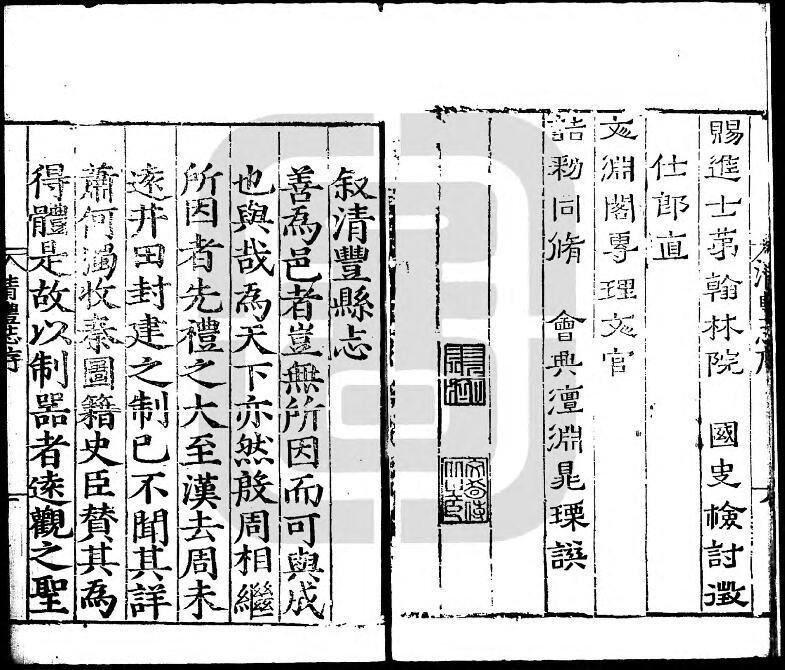 賜進士苐翰林院　國史檢討徵
仕郎直
文淵閣專理文官
誥勑同脩　會典澶淵晁瑮譔
叙清豐縣志
善為邑者豈無所因而可與成
也與哉為天下亦然殷周相繼
所因者先禮之大至漢去周未
逺井田封建之制已不聞其詳
蕭何獨收秦圖籍史臣賛其為
得體是故以制器者逺觀之聖